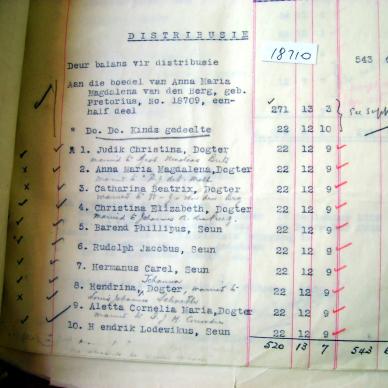 DISTRIBUSIE
18710
Deur balans vir distribusie 543 6
Aan die boedel van Anna Maria
Magdalena van den Berg, geb.
Pretorius, No. 18709, een-
half deel 271 13 3
" Do. Do. Kinds gedeelte 22 12 10
1. Judik Christina, Dogter 22 12 9
married to Nicolaas
2. Anna Maria Magdalena,Dogter 22 12 9
married to
3. Catharina Beatrix, Dogter 22 12 9
married to
4. Christina Elizabeth, Dogter 22 12 9
married to Johannes
5. Barend Phillipus, Seun 22 12 9
6. Rudolph Jacobus, Seun 22 12 9
7. Hermanus Carel, Seun 22 12 9
Johanna
8. Hendrina, Dogter, married to 22 12 9
Louis Johannes
9. Aletta Cornelia Maria,Dogter 22 12 9
married to
10. H endrik Lodewikus, Seun 22 12 9
520 13 7 543 6